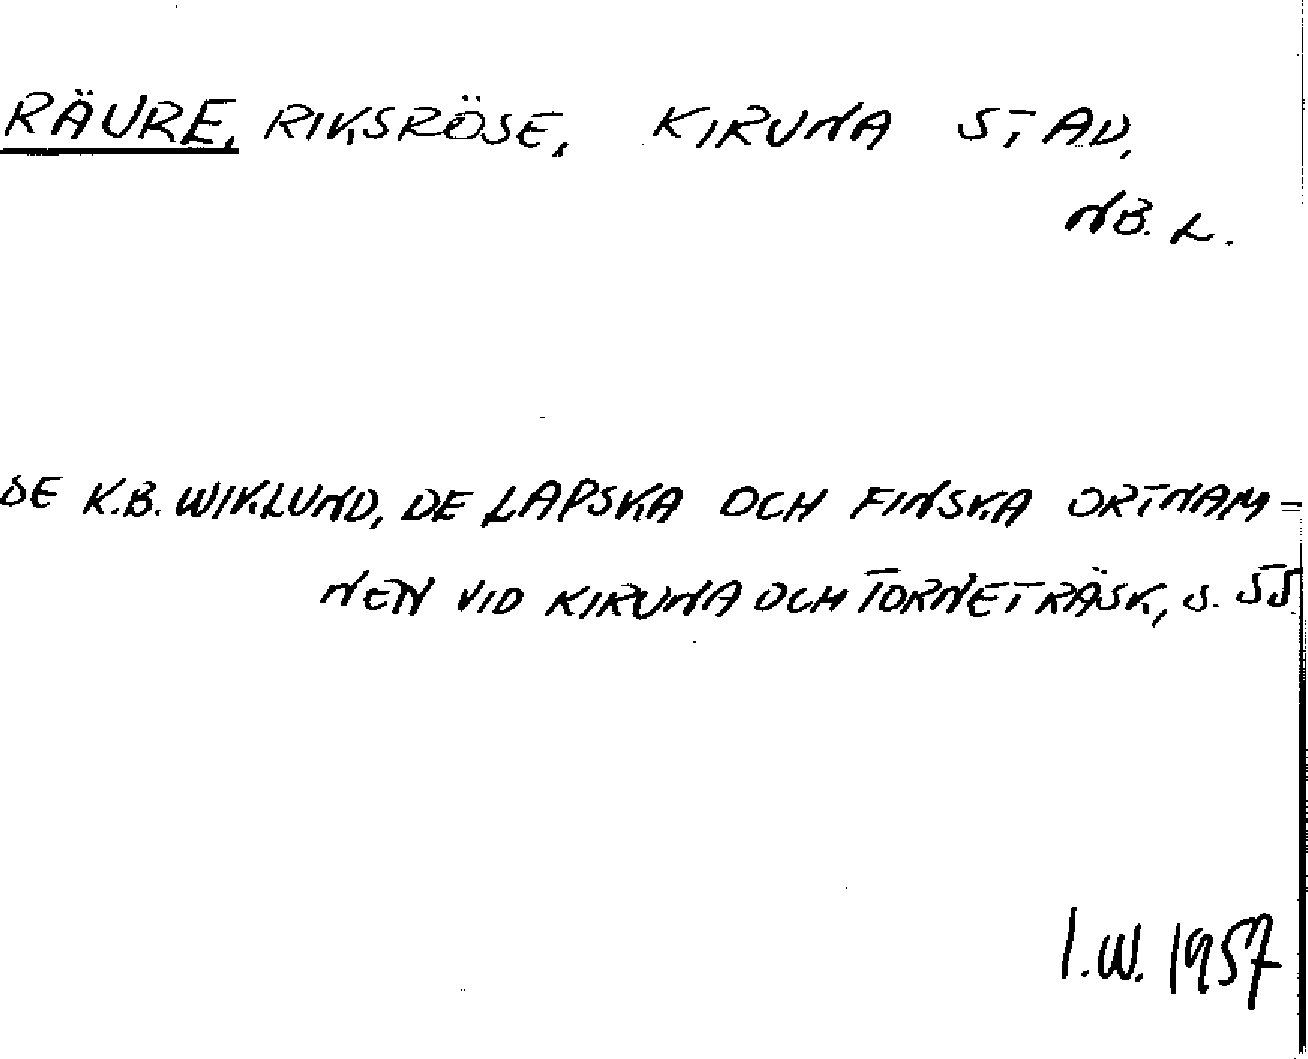 RÄURE, RIKSRÖSE, KIRUNA STAD,
NB. L.
SE K.B. WIKLUND, DE LAPSKA OCH FINSKA ORTNAM-
NEN VID KIRUNA OCH TORNETRÄSK, S. 55.
I.W. 1957